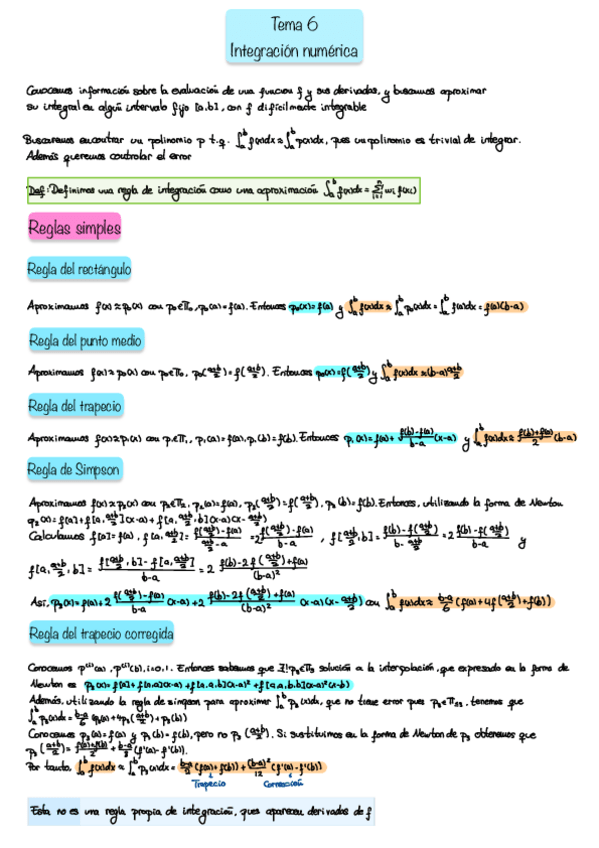 Tema 6
Integración numérica
Conocemos información sobre la evaluación de una función f y sus derivadas, y buscamos aproximar
su integral en algún intervalo fijo [a,b], con f difícilmente integrable
Buscaremos encontrar un polinomio p t.q. ∫_a^b f(x)dx ≈ ∫_a^b p(x)dx, pues un polinomio es trivial de integrar.
Además queremos controlar el error
Def: Definimos una regla de integración como una aproximación ∫_a^b f(x)dx ≈ Σ_{i=1}^n w_i f(x_i)
Reglas simples
Regla del rectángulo
Aproximamos f(x) ≈ p₀(x) con p₀∈Π₀, p₀(a)=f(a). Entonces p₀(x)=f(a) y ∫_a^b f(x)dx ≈ ∫_a^b p₀(x)dx = ∫_a^b f(a)dx = f(a)(b-a)
Regla del punto medio
Aproximamos f(x) ≈ p₀(x) con p∈Π₀, p₀((a+b)/2)=f((a+b)/2). Entonces p₀(x)=f((a+b)/2) y ∫_a^b f(x)dx ≈ (b-a)(a+b)/2
Regla del trapecio
Aproximamos f(x) ≈ p₁(x) con p∈Π₁, p₁(a)=f(a), p₁(b)=f(b). Entonces p₁(x)=f(a)+(f(b)-f(a))/(b-a) (x-a) y ∫_a^b f(x)dx ≈ (f(b)+f(a))/2 (b-a)
Regla de Simpson
Aproximamos f(x) ≈ p₂(x) con p₂∈Π₂, p₂(a)=f(a), p₂((a+b)/2)=f((a+b)/2), p₂(b)=f(b). Entonces, utilizando la forma de Newton
p₂(x)=f[a]+f[a,(a+b)/2](x-a)+f[a,(a+b)/2,b](x-a)(x-(a+b)/2)
Calculamos f[a]=f(a), f[a,(a+b)/2]=(f((a+b)/2)-f(a))/((a+b)/2-a)=2(f((a+b)/2)-f(a))/(b-a), f[(a+b)/2,b]=(f(b)-f((a+b)/2))/(b-(a+b)/2)=2(f(b)-f((a+b)/2))/(b-a) y
f[a,(a+b)/2,b]=(f[(a+b)/2,b]-f[a,(a+b)/2])/(b-a)=2(f(b)-2f((a+b)/2)+f(a))/(b-a)²
Así, p₂(x)=f(a)+2(f((a+b)/2)-f(a))/(b-a) (x-a)+2(f(b)-2f((a+b)/2)+f(a))/(b-a)² (x-a)(x-(a+b)/2) con ∫_a^b f(x)dx ≈ (b-a)/6 (f(a)+4f((a+b)/2)+f(b))
Regla del trapecio corregida
Conocemos p⁽ⁱ⁾(a), p⁽ⁱ⁾(b), i=0,1. Entonces sabemos que ∃!p₃∈Π₃ solución a la interpolación, que expresado en la forma de
Newton es p₃(x)=f[a]+f[a,a](x-a)+f[a,a,b](x-a)²+f[a,a,b,b](x-a)²(x-b)
Además, utilizando la regla de simpson para aproximar ∫_a^b p₃(x)dx, que no tiene error pues p₃∈Π₃, tenemos que
∫_a^b p₃(x)dx=(b-a)/6 (p₃(a)+4p₃((a+b)/2)+p₃(b))
Conocemos p₃(a)=f(a) y p₃(b)=f(b), pero no p₃((a+b)/2). Si sustituimos en la forma de Newton de p₃ obtenemos que
p₃((a+b)/2)=(f(a)+f(b))/2+(b-a)/8 (f'(a)-f'(b)).
Por tanto, ∫_a^b f(x)dx ≈ ∫_a^b p₃(x)dx = (b-a)/2 (f(a)+f(b))+(b-a)²/12 (f'(a)-f'(b))
Trapecio Corrección
Esta no es una regla propia de integración, pues aparecen derivadas de f